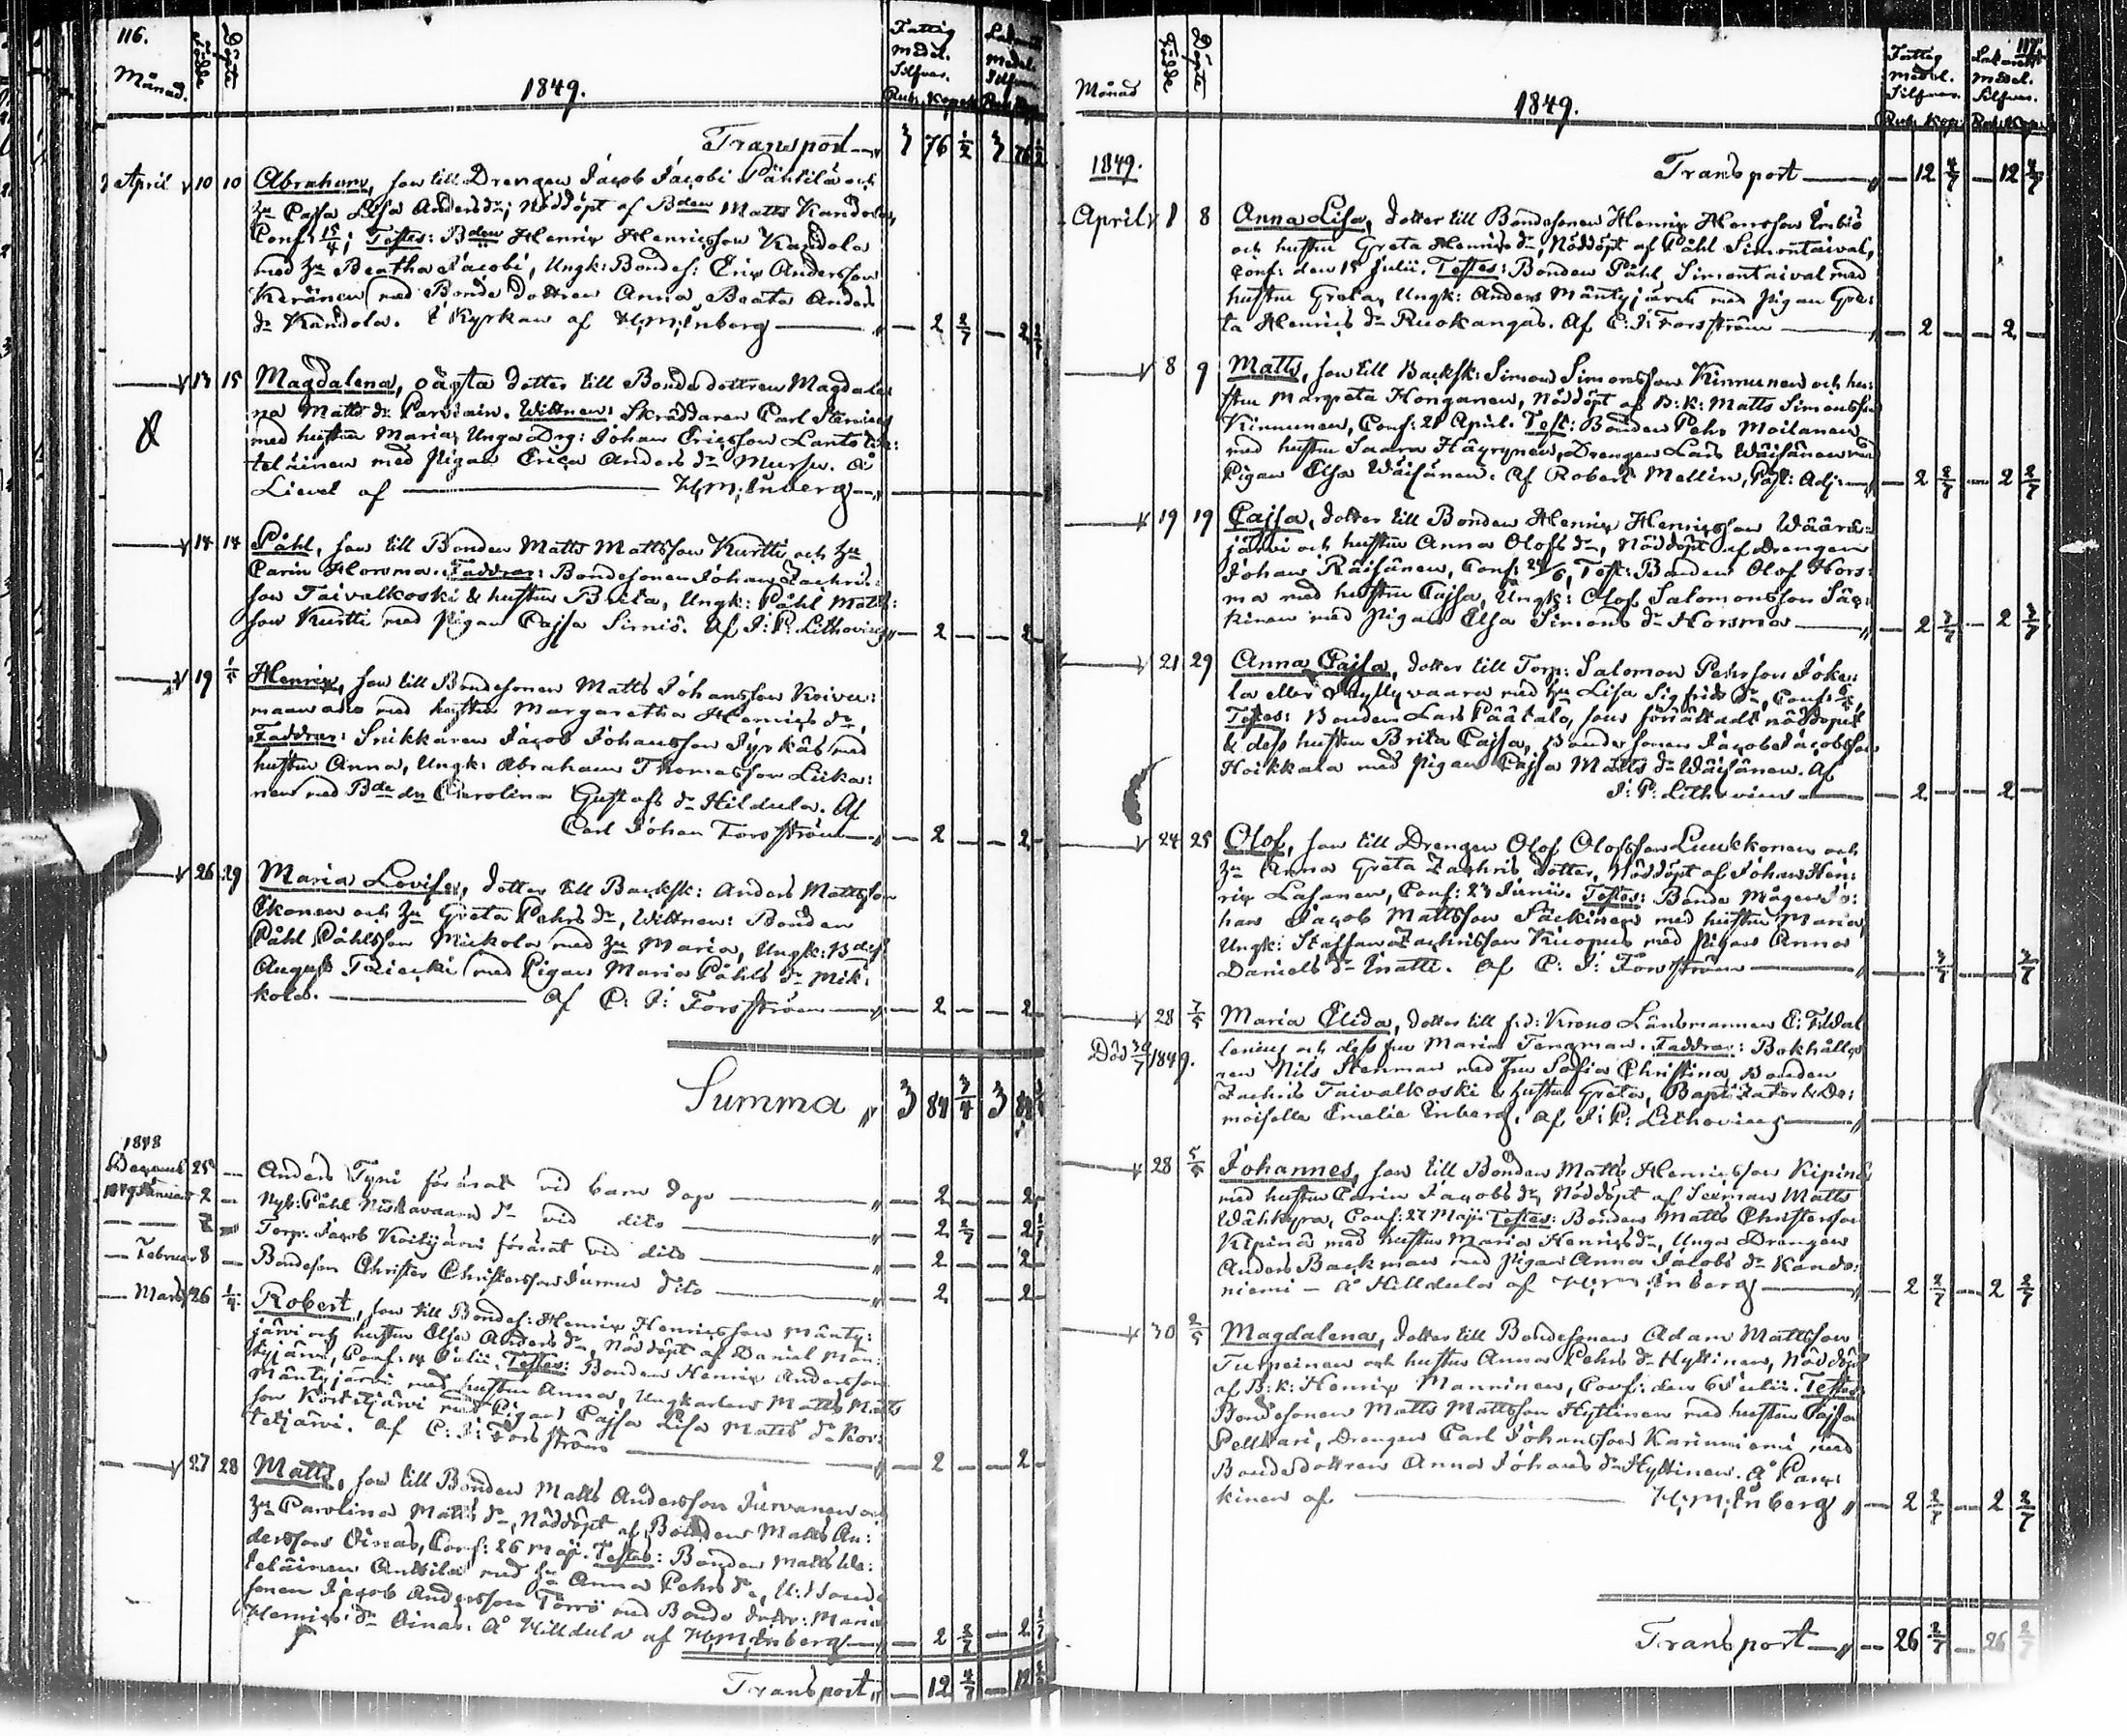 116.
Månad. Födde Döpte 1849. Fattig Medel. Silfver. Rub. Kopek
Transport 3 76 1/2 3 76 1/2
April 10 10 Abraham, son till Drengen Jacob Jacobi Päkkilä och
hu Cajsa Lisa Andersdr; Nöddöpt af Bden Matts Kandola,
Conf: 15/4; Testes: Bden Henrix Henricsson Kandola
med hu Beatha Jacobi, Ungk: Bondes: Eric Andersson
Keränen med Bonde dottren Anna Beata Anders
dr Kandola. i Kyrkan af H: M: Enberg — 2 2/7 — 2 2/7
13 15 Magdalena, oägta dotter till Bondedottren Magdale
na Matts dr Parviain. Wittnen: Skräddaren Carl Stenius
med hustru Maria, Unga Drg: Johan Ericsson Lanto
teläinen med Pigan Erica Anders dr Mursu. å
Lievel af H: M: Enberg
14 14 Påhl, son till Bonden Matts Mattsson Kurtti och hu
Carin Horsma. Faddrar: Bondesonen Johan Zachris:
son Taivalkoski & hustru Brita, Ungk: Påhl Matts:
son Kurtti med Pigan Cajsa Simis. Af J: P: Lithovius — 2 — — 2
19 Henrix, son till Bondesonen Matts Johansson Koivu:
maa med hustru Margaretha Henrics dr,
Faddrar: Snikkaren Jacob Johansson Jyrkäs med
hustru Anna, Ungk: Abraham Thomasson Liika:
nen med Bde dn Carolina Gustafs dr Hildula. Af
Carl Johan Forsström — 2 — 2
26 29 Maria Lovisa, dotter till Backsk: Anders Mattsson
Ikonen och hu Greta Pehrs dr, Wittnen: Bonden
Påhl Påhlsson Mickola med hu Maria, Ungk: Bdes
August med Pigan Maria Påhls dr Mik:
kola. af C: J: Forsström — 2 — — 2
Summa 3 84 3/4 3 84
1848
December 25 — Anders Tyni förärat vid barn dop — 2 — — 2
1849 Januari 2 — Nyb: Påhl Niskavaara dr vid dito — 2 2/7 — 2
— — 7 Torp: Jacob Koitijärvi förärat vid dito — 2 — — 2
— Februar 8 — Bondeson Christer Christersson Jurmu dito — 2 — 2
— Mars 26 1/4 Robert, son till Bondes: Henrix Henricsson Mänty:
järvi och hustru Elsa Anders dr, Nöddöpt af Daniel Män
tyjärvi, Conf: 14 Julii. Testes: Bonden Henrix Andersson
Mäntyjärvi med hustru Anna, Ungkarlen Matts Matts
son Kortetjärvi med Pigan Cajsa Lisa Matts dr Kor:
tetjärvi. Af C: J: Forsström — 2 — — 2
27 28 Matts, son till Bonden Matts Andersson Jurvanen och
hu Carolina Matts dr, Nöddöpt af Bonden Matts An:
dersson Oinas, Conf: 26 Maji. Testes: Bonden Matts
teläinen Anttila med hu Anna Pehrs dr, U: Bonde
sonen Jacob Andersson Törrö med Bonde dotter: Maria
Henrics dr Oinas. Å Hilldula af H: M: Enberg — 2 2/7 — 2
Transport — 12 4/7 — 12
117.
Månad Födde Döpte 1849. Fattig medel. Silfver. Rub. Kop. Lazaretts Medel. Silfver. Rub. Kop.
1849. Transport — 12 4/7 — 12 4/7
April 1 8 Anna Lisa, dotter till Bondesonen Henrix Hansson Imbiö
och hustru Greta Henrics dr, Nöddöpt af Påhl Simontaival,
Conf: den 15 Julii. Testes: Bonden Påhl Simontaival med
hustru Greta, Ungk: Anders Mäntyjärvi med Pigan Gre:
ta Henrics dr Ruokangas. Af C: J: Forsström — 2 — — 2 —
8 9 Matts, son till Backsk: Simon Simonsson Kinnunen och hu:
stru Margreta Honganen, Nöddöpt af B: k: Matts Simonsson
Kinnunen, Conf: 21 April. Test: Bonden Pehr Moilanen
med hustru Saara Häyrynen, Drengen Lars Wäisänen med
Pigan Elsa Wäisänen. Af Robert Mellin, Past: Adj: — 2 2/7 — 2 2/7
19 19 Cajsa, dotter till Bonden Henrix Henricsson Wäärä:
järvi och hustru Anna Olofs dr, Nöddöpt af Drengen
Johan Räisänen, Conf: 24/6, Test: Bonden Olof Hors:
ma med hustru Cajsa, Ungk: Olof Salomonsson Säc:
kinen med Pigan Elsa Simons dr Horsma — 2 2/7 — 2 2/7
21 29 Anna Cajsa, dotter till Torp: Salomon Pehrsson Joke:
la eller Myllyvaara med hu Lisa Sigfrids dr, Conf:
Testes: Bonden Lars Päätalo, som förrättadt nöddopet
& dess hustru Brita Cajsa, Bondesonen Jacob Jacobsson
Hoikkala med Pigan Cajsa Matts dr Wäisänen. Af
J: P: Lithovius — 2 — — 2 —
24 25 Olof, son till Drengen Olof Olofsson Luukkonen och
hu Anna Greta Zachris dotter, Nöddöpt af Johan Hen:
rix Lasanen, Conf: 23 Junii. Testes: Bonde Mågen Jo:
han Jacob Mattsson Säckinen med hustru Maria,
Ungk: Staffan Zachrisson Kuopus med Pigan Anna
Daniels dr Inatti. Af C: J: Forsström — 2/7 — 2/7
28 7/5 Maria Elida, dotter till f.d: Krono Länsmannen C: F: Wal
lenius och dess fru Maria Tengman. Faddrar: Bokhålla
ren Nils Stenman med Fru Sofia Christina, Bonden
Zachris Taivalkoski & hustru Greta, Baptizator & De:
moiselle Emelie Enberg. Af J: P: Lithovius
Död 30/7 1849.
28 5/5 Johannes, son till Bonden Matts Henricsson Kipinä
med hustru Carin Jacobs dr, Nöddöpt af Sexman Matts
Wähkyrä, Conf: 27 Maji Testes: Bonden Matts Christersson
Kipinä med hustru Maria Henrics dr, Unga Drengen
Anders Backman med Pigan Anna Jacobs dr Kando:
niemi — Å Hilldula af H: M: Enberg — 2 2/7 — 2 2/7
30 2/5 Magdalena, dotter till Bondesonen Adam Mattsson
Turpeinen och hustru Anna Pehrs dr Hyttinen, Nöddöpt
af B: k: Henrix Manninen, Conf: den 6 Julii. Testes:
Bondesonen Matts Mattsson Hyttinen med hustru Cajsa
Pelkkari, Drengen Carl Johansson Karinniemi med
Bondedottren Anna Johans dr Hyttinen. Å
kinen af H: M: Enberg — 2 2/7 — 2 2/7
Transport — 26 2/7 — 26 2/7